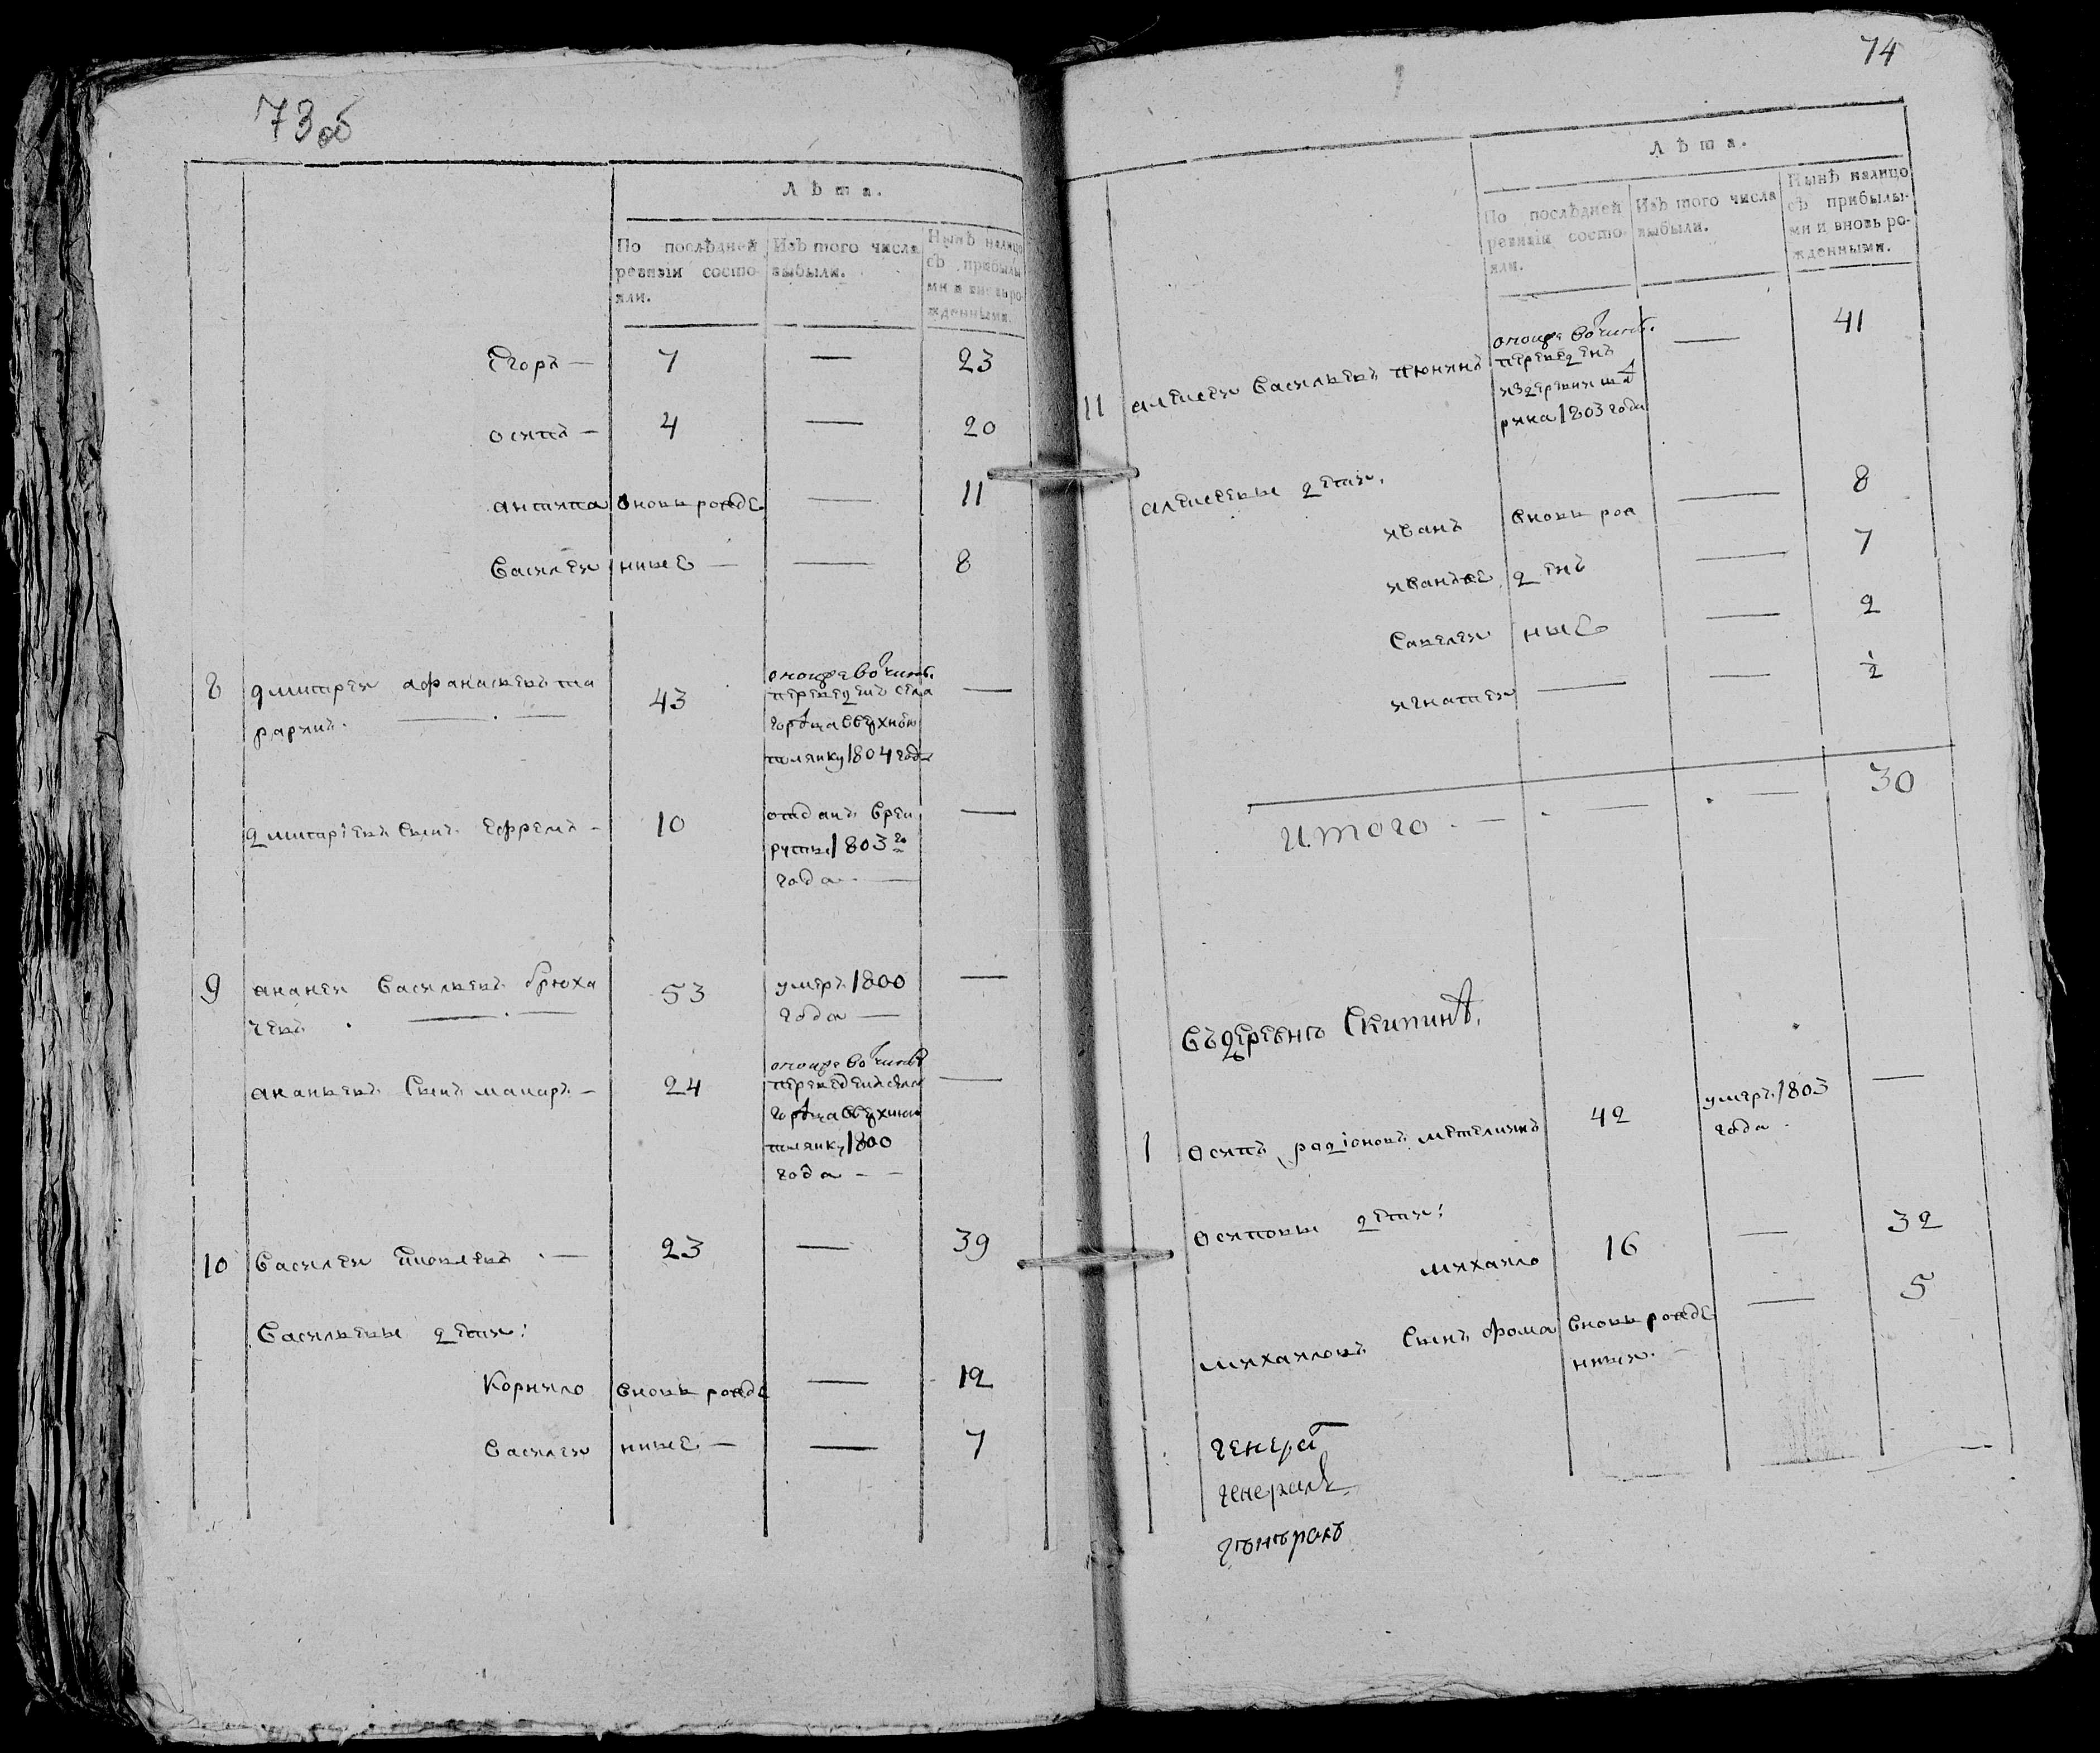 73об
Лѣта.
По послѣдней ревизіи состояли.
Изъ того числа выбыли.
Нынѣ налицо съ прибылыми и вновь рожденными.
Егоръ — 7 — 23
осипъ — 4 — 20
антипа вновь рожде — 11
Василеи нные — — 8
8 дмитреи афанасьевъ та 43 —
рарин. — . —
переведенъ села
полянку 1804 года
дмитріевъ Сынъ Ефремъ — 10 отданъ Врек —
руты 1803го
года —
9 ананеи Васильевъ брюха 53 умеръ 1800 —
чевъ . — . — года —
ананьевъ Сынъ макаръ — 24 —
переведенъ села
полянку 1800
года — —
10 Василеи яковлевъ . — 23 — 39
Васильевы дети:
Корнило вновь рожде — 12
Василеи нные — — 7
74
Лѣта.
По послѣдней ревизіи состояли.
Изъ того числа выбыли.
Нынѣ налицо съ прибылыми и вновь рожденными.
11 алексеи Васильевъ — 41
переведенъ
издеревни
рина 1803 года
алексеевы дети.
иванъ вновь рож — 8
иванъже денъ — 7
Савелеи ные — 2
игнатеи — — ½
Итого . — . — . — 30
Въдеревнѣ Скипинѣ.
1 Осипъ радіоновъ метелинъ 42 умеръ 1803 —
года .
Осиповы дети:
михаило 16 — 32
михаиловъ Сынъ фома вновь рожде — 5
нныи. —
генерал
генералъ
гѣнѣралъ